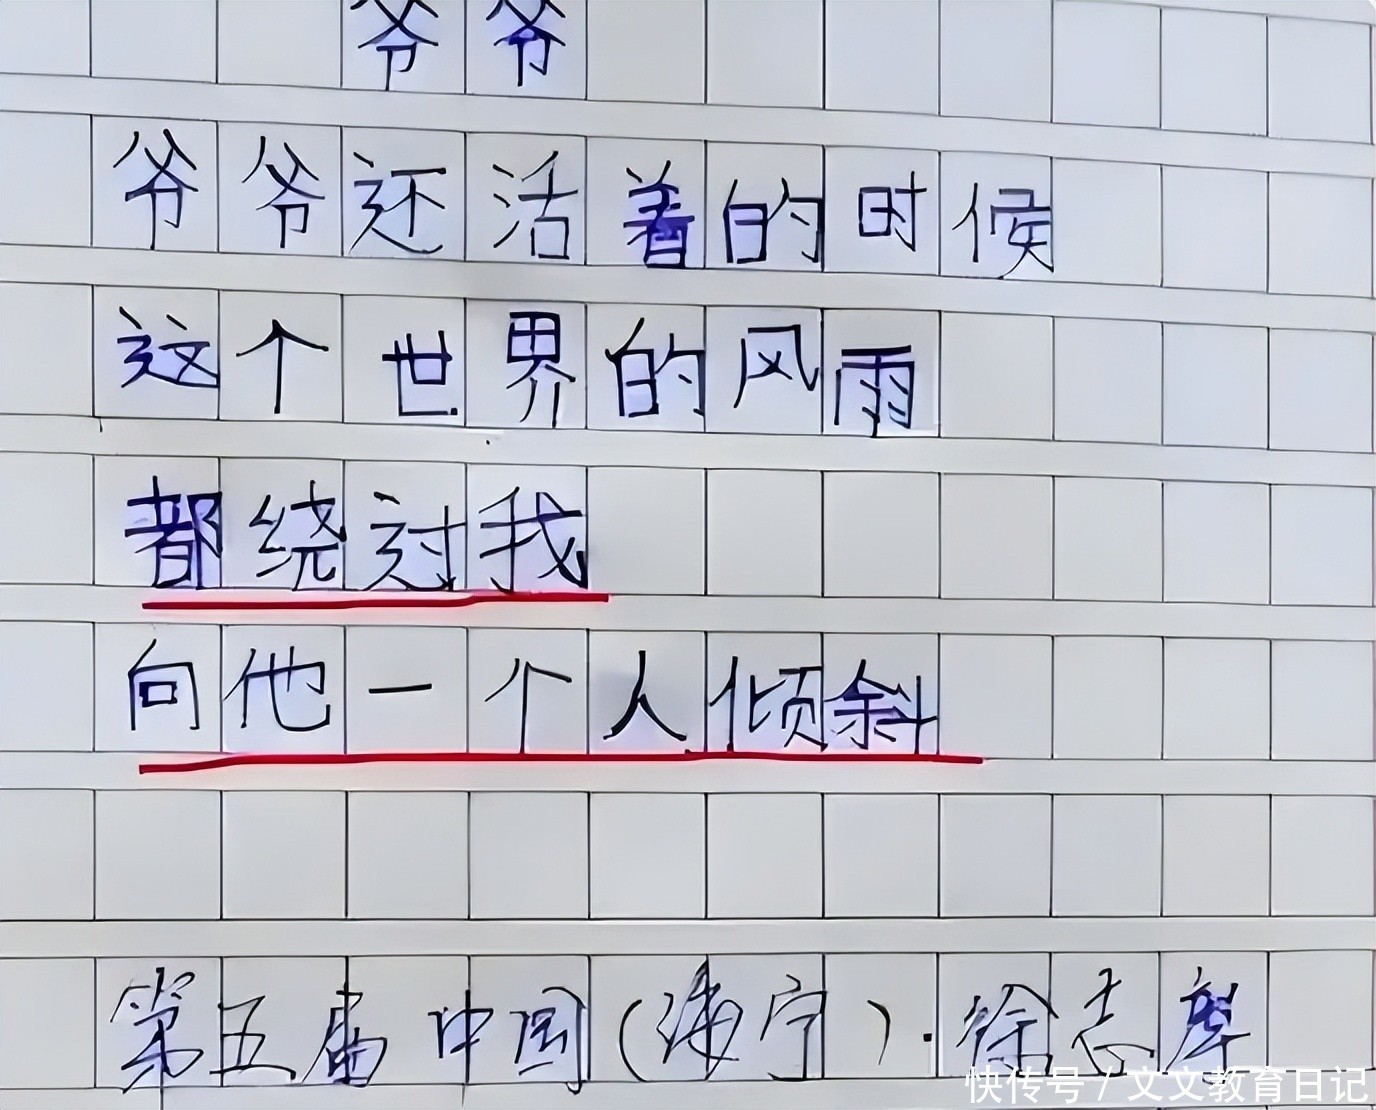 爷爷
爷爷还活着的时候
这个世界的风雨
都绕过我
向他一个人倾斜
第五届中国(海宁)·徐志摩
快传号/文文教育日记